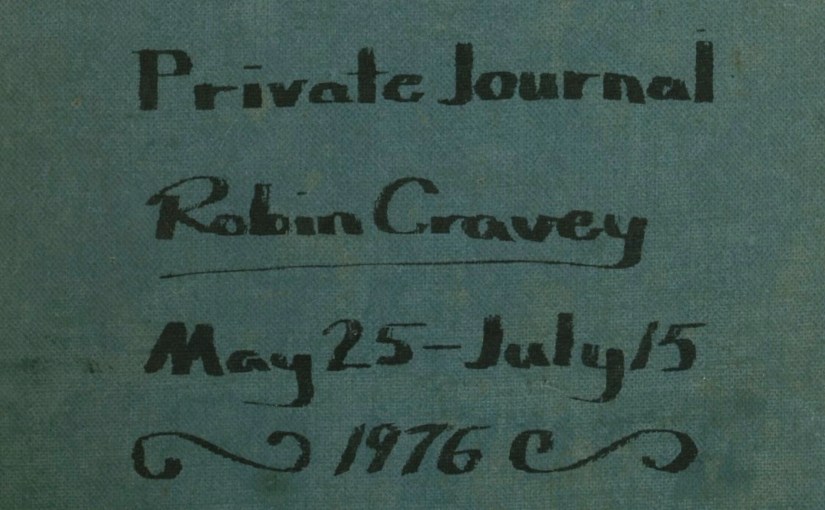 Private Journal
Robin Cravey
May 25-July 15
1976